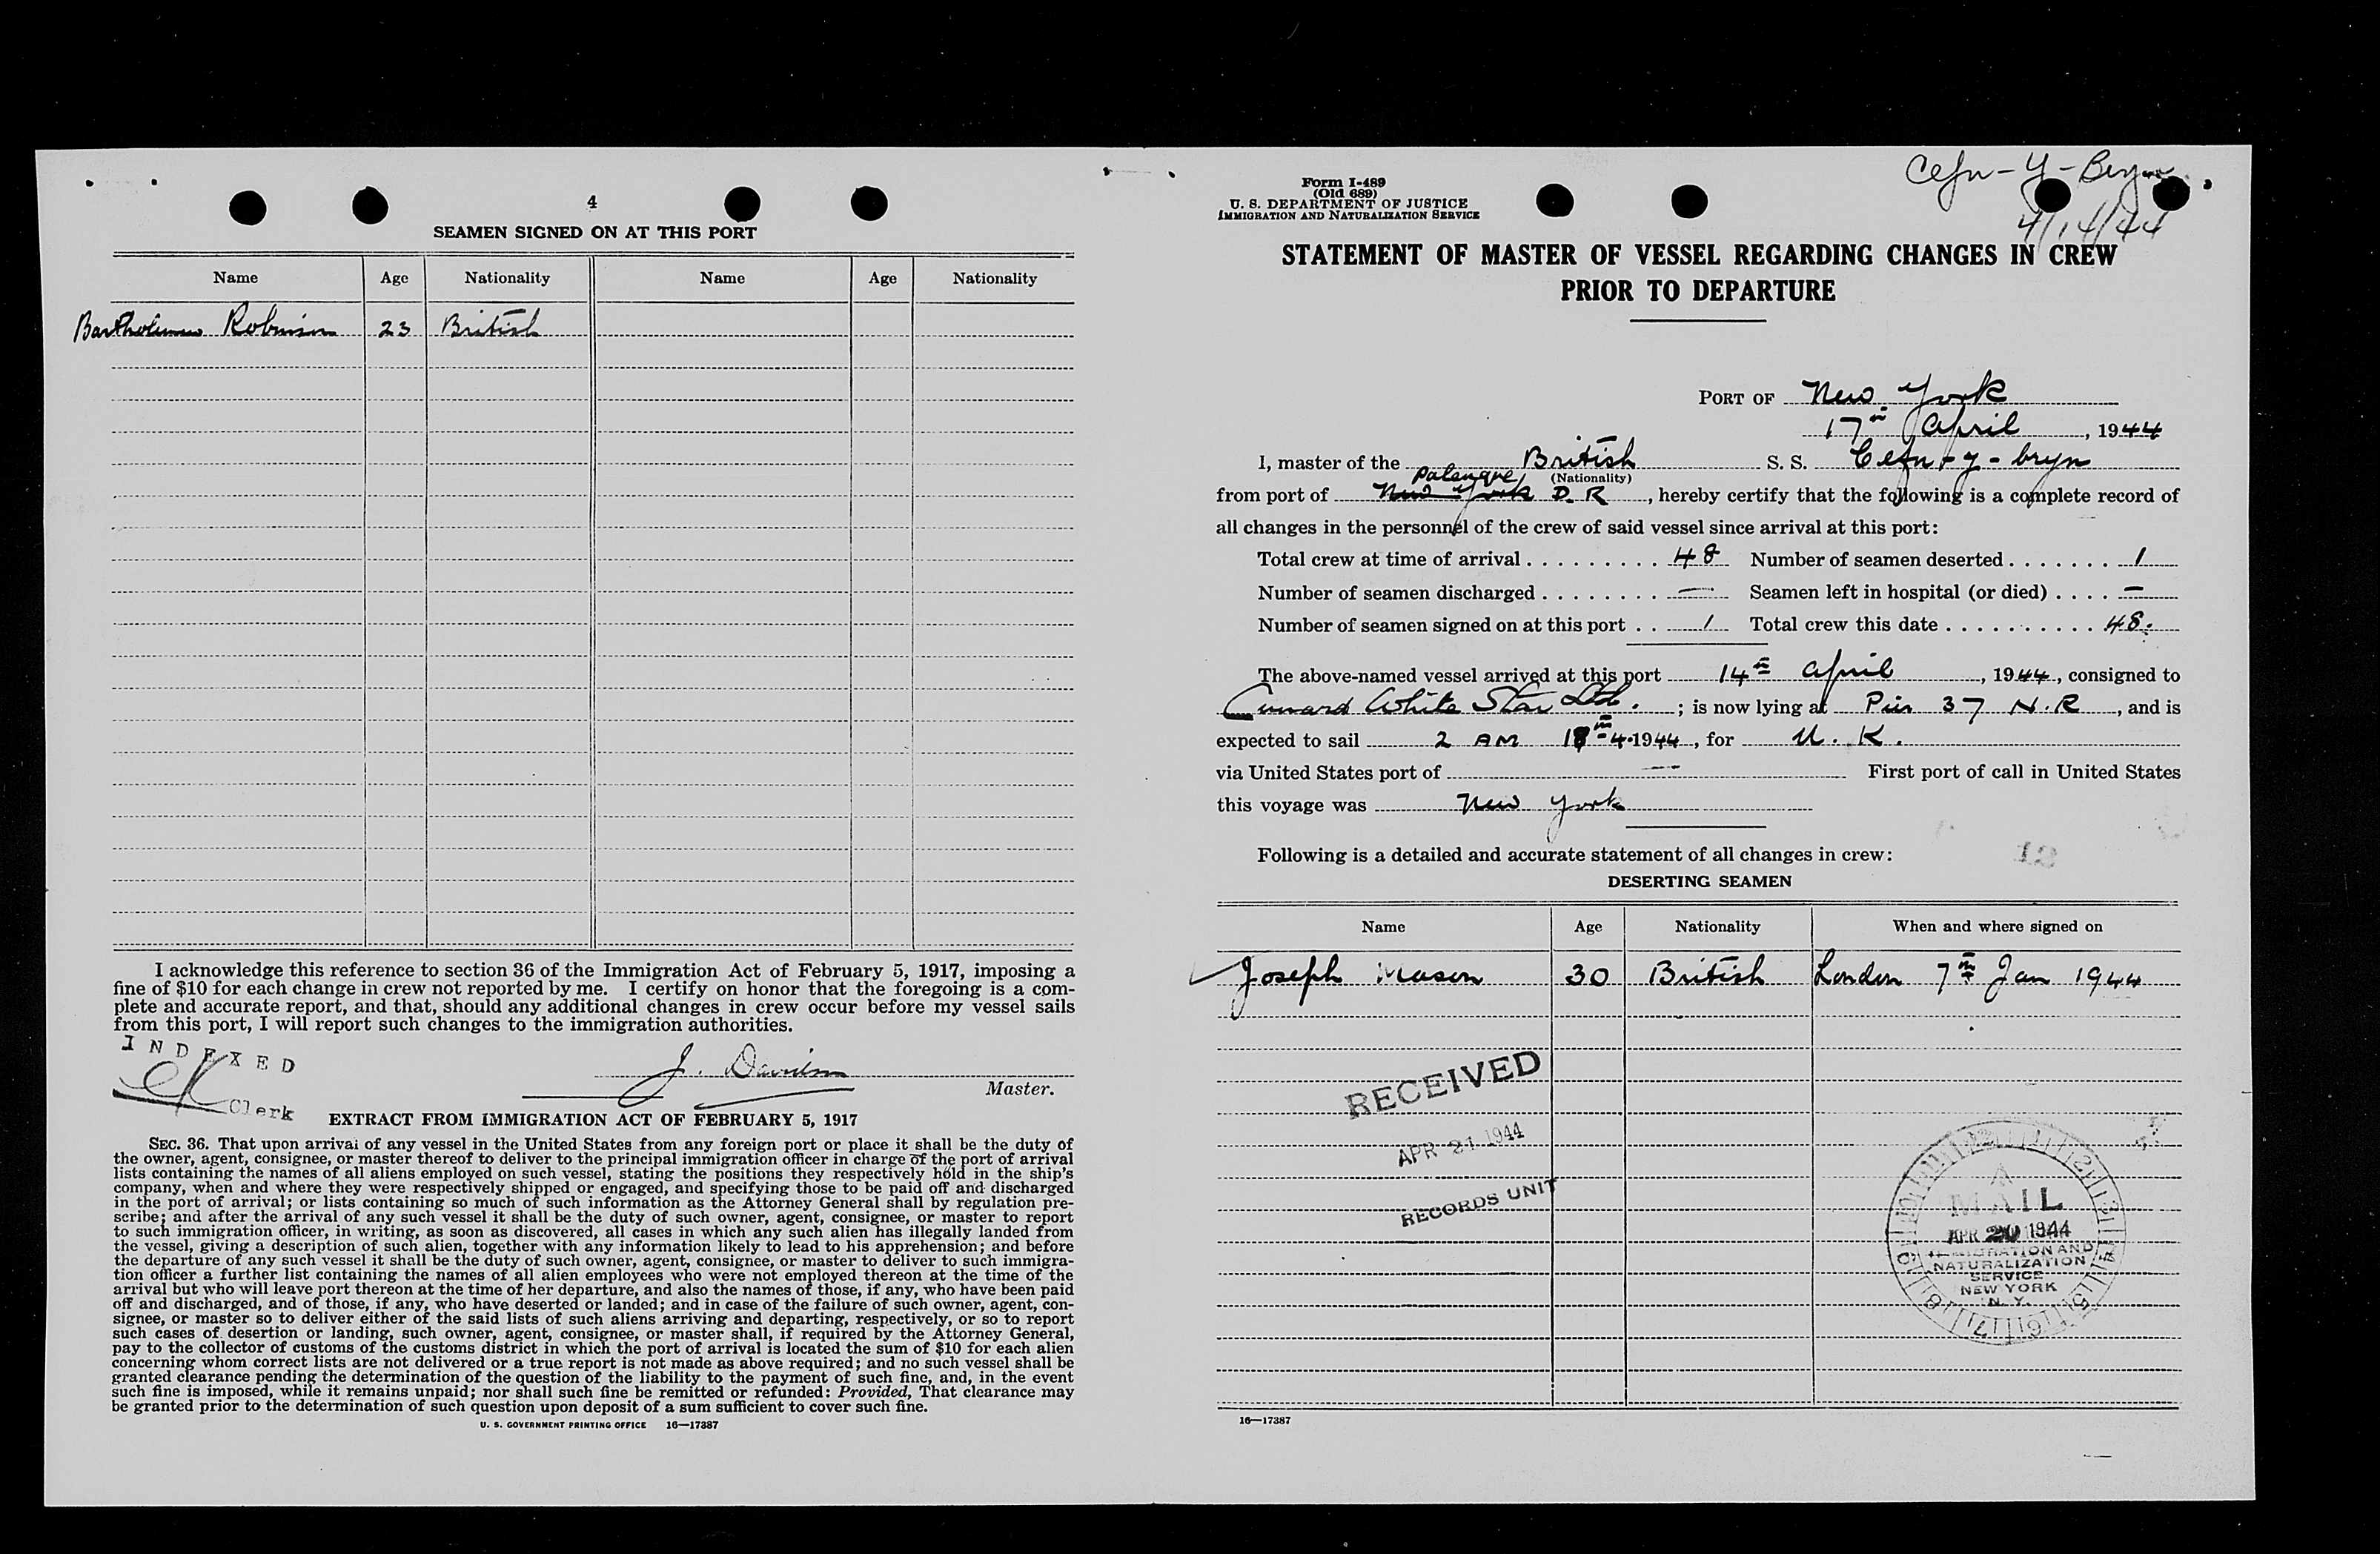 4
SEAMEN SIGNED ON AT THIS PORT
Name Age Nationality Name Age Nationality
Bartholomew Robinson 23 British
I acknowledge this reference to section 36 of the Immigration Act of February 5, 1917, imposing a
fine of $10 for each change in crew not reported by me. I certify on honor that the foregoing is a com-
plete and accurate report, and that, should any additional changes in crew occur before my vessel sails
from this port, I will report such changes to the immigration authorities.
INDEXED
Clerk
J. Davidson
Master.
EXTRACT FROM IMMIGRATION ACT OF FEBRUARY 5, 1917
SEC. 36. That upon arrival of any vessel in the United States from any foreign port or place it shall be the duty of
the owner, agent, consignee, or master thereof to deliver to the principal immigration officer in charge of the port of arrival
lists containing the names of all aliens employed on such vessel, stating the positions they respectively hold in the ship's
company, when and where they were respectively shipped or engaged, and specifying those to be paid off and discharged
in the port of arrival; or lists containing so much of such information as the Attorney General shall by regulation pre-
scribe; and after the arrival of any such vessel it shall be the duty of such owner, agent, consignee, or master to report
to such immigration officer, in writing, as soon as discovered, all cases in which any such alien has illegally landed from
the vessel, giving a description of such alien, together with any information likely to lead to his apprehension; and before
the departure of any such vessel it shall be the duty of such owner, agent, consignee, or master to deliver to such immigra-
tion officer a further list containing the names of all alien employees who were not employed thereon at the time of the
arrival but who will leave port thereon at the time of her departure, and also the names of those, if any, who have been paid
off and discharged, and of those, if any, who have deserted or landed; and in case of the failure of such owner, agent, con-
signee, or master so to deliver either of the said lists of such aliens arriving and departing, respectively, or so to report
such cases of desertion or landing, such owner, agent, consignee, or master shall, if required by the Attorney General,
pay to the collector of customs of the customs district in which the port of arrival is located the sum of $10 for each alien
concerning whom correct lists are not delivered or a true report is not made as above required; and no such vessel shall be
granted clearance pending the determination of the question of the liability to the payment of such fine, and, in the event
such fine is imposed, while it remains unpaid; nor shall such fine be remitted or refunded: Provided, That clearance may
be granted prior to the determination of such question upon deposit of a sum sufficient to cover such fine.
U. S. GOVERNMENT PRINTING OFFICE 16—17387
Cefn-Y-Bryn
4/14/44
Form I-489
(Old 689)
U. S. DEPARTMENT OF JUSTICE
IMMIGRATION AND NATURALIZATION SERVICE
STATEMENT OF MASTER OF VESSEL REGARDING CHANGES IN CREW
PRIOR TO DEPARTURE
PORT OF New York
17th April, 1944
I, master of the British S. S. Cefn-y-bryn
(Nationality)
Palenque
from port of New York D. R, hereby certify that the following is a complete record of
all changes in the personnel of the crew of said vessel since arrival at this port:
Total crew at time of arrival . . . . . . . . . 48 Number of seamen deserted . . . . . . . 1
Number of seamen discharged . . . . . . . . — Seamen left in hospital (or died) . . . . —
Number of seamen signed on at this port . . 1 Total crew this date . . . . . . . . . . 48.
The above-named vessel arrived at this port 14th April, 1944, consigned to
Cunard White Star Ltd.; is now lying at Pier 37 N.R, and is
expected to sail 2 AM 18th-4-1944, for U. K.
via United States port of — First port of call in United States
this voyage was New York
Following is a detailed and accurate statement of all changes in crew:
12
DESERTING SEAMEN
Name Age Nationality When and where signed on
Joseph Mason 30 British London 7th Jan 1944
RECEIVED
APR 21 1944
RECORDS UNIT
MAIL
APR 20 1944
IMMIGRATION AND
NATURALIZATION
SERVICE
NEW YORK
N. Y.
16—17387